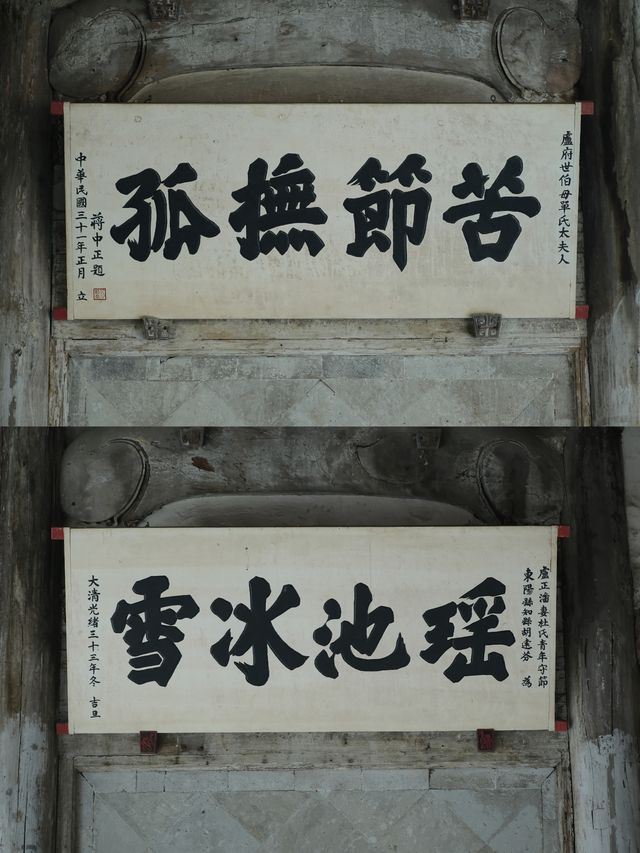 盧府世伯母單氏太夫人
苦節撫孤
蔣中正題
中華民國三十一年正月 立
盧正潘妻杜氏青年守節
東陽縣知縣胡遠芬 為
瑶池冰雪
大清光緒三十三年冬 吉旦